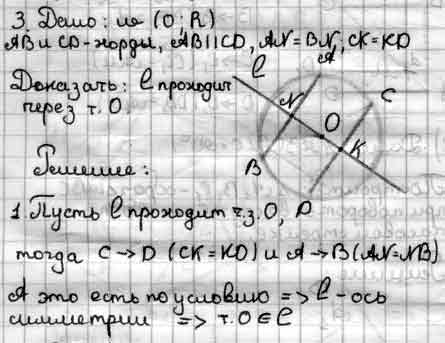 3. Дано: ω (O; R)
AB и CD - хорды, AB || CD, AN = BN, CK = KD
Доказать: l проходит
через т. O.
l
A
N
C
O
K
B
D
Решение:
1. Пусть l проходит ч.з. O,
тогда C → D (CK = KD) и A → B (AN = NB)
А это есть по условию => l - ось
симметрии => т. O ∈ l